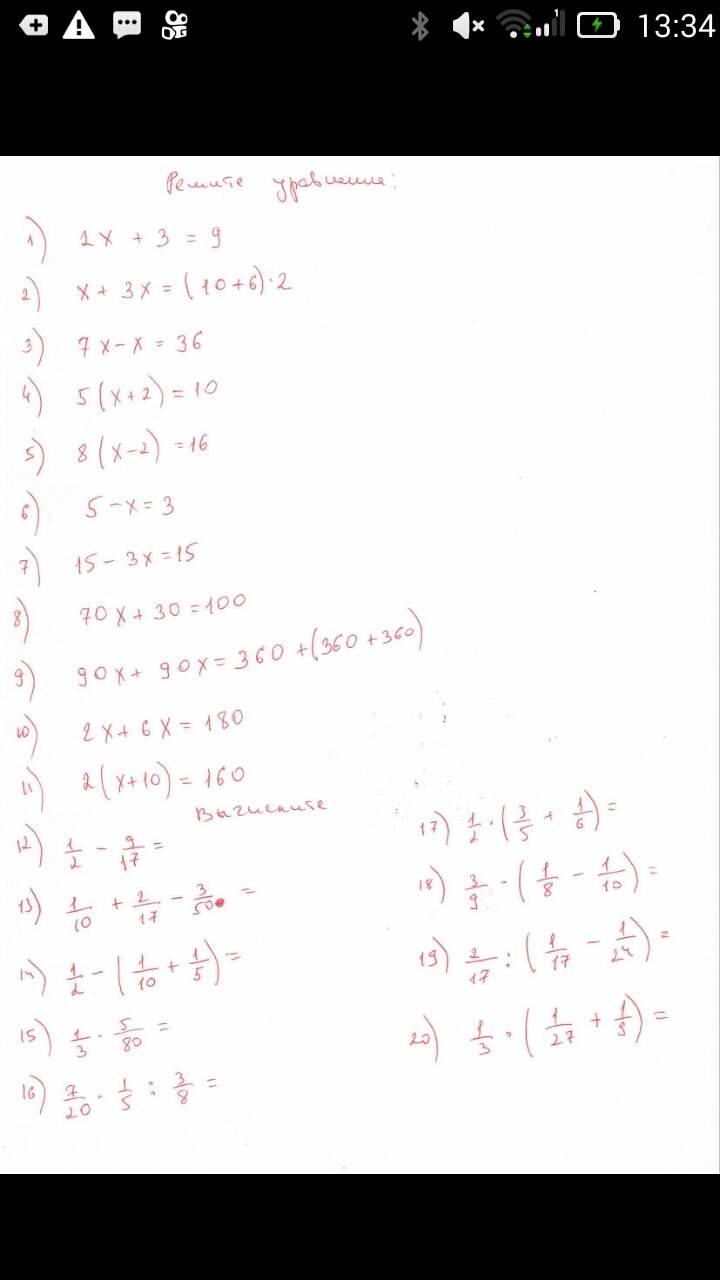 13:34
Решите уравнение:
1) 2x + 3 = 9
2) x + 3x = (10+6)·2
3) 7x - x = 36
4) 5(x+2) = 10
5) 8(x-2) = 16
6) 5 - x = 3
7) 15 - 3x = 15
8) 70x + 30 = 100
9) 90x + 90x = 360 + (360 + 360)
10) 2x + 6x = 180
11) 2(x+10) = 160
Вычислите
12) 1/2 - 9/17 =
13) 1/10 + 2/17 - 3/50 =
14) 1/2 - (1/10 + 1/5) =
15) 1/3 · 5/80 =
16) 7/20 · 1/5 : 3/8 =
17) 1/2 · (3/5 + 1/6) =
18) 3/9 · (1/8 - 1/10) =
19) 2/17 : (1/17 - 1/24) =
20) 1/3 · (1/27 + 1/9) =